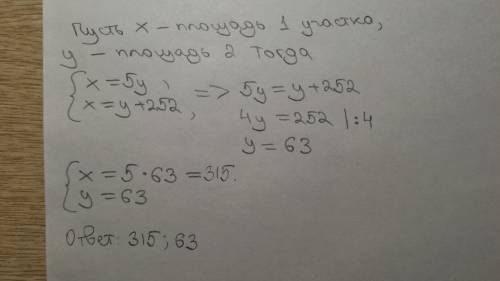 Пусть x – площадь 1 участка,
y – площадь 2 тогда
{ x = 5y , => 5y = y + 252
x = y + 252 , 4y = 252 | : 4
y = 63
{ x = 5 · 63 = 315.
y = 63
Ответ: 315 ; 63